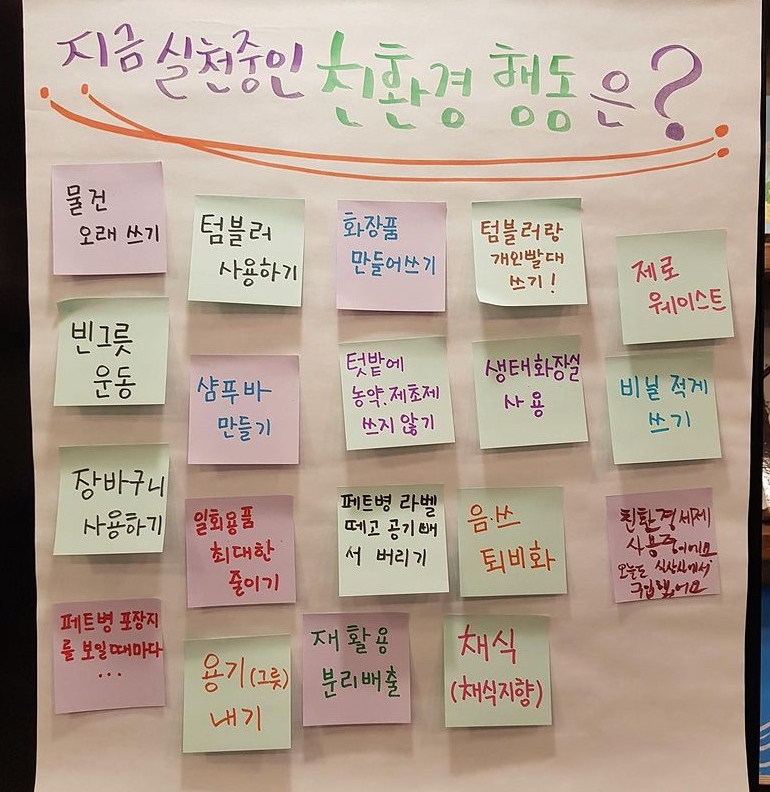 지금 실천중인 친환경 행동은?
물건
오래 쓰기
텀블러
사용하기
화장품
만들어쓰기
텀블러랑
개인빨대
쓰기!
제로
웨이스트
빈그릇
운동
샴푸바
만들기
텃밭에
농약.제초제
쓰지 않기
생태화장실
사용
비닐 적게
쓰기
장바구니
사용하기
일회용품
최대한
줄이기
페트병 라벨
떼고 공기빼
서 버리기
음.쓰
퇴비화
친환경세제
사용중이에요
오늘도 식상신에서
구입했어요
페트병 포장지
를 보일때마다
...
용기(그릇)
내기
재활용
분리배출
채식
(채식지향)